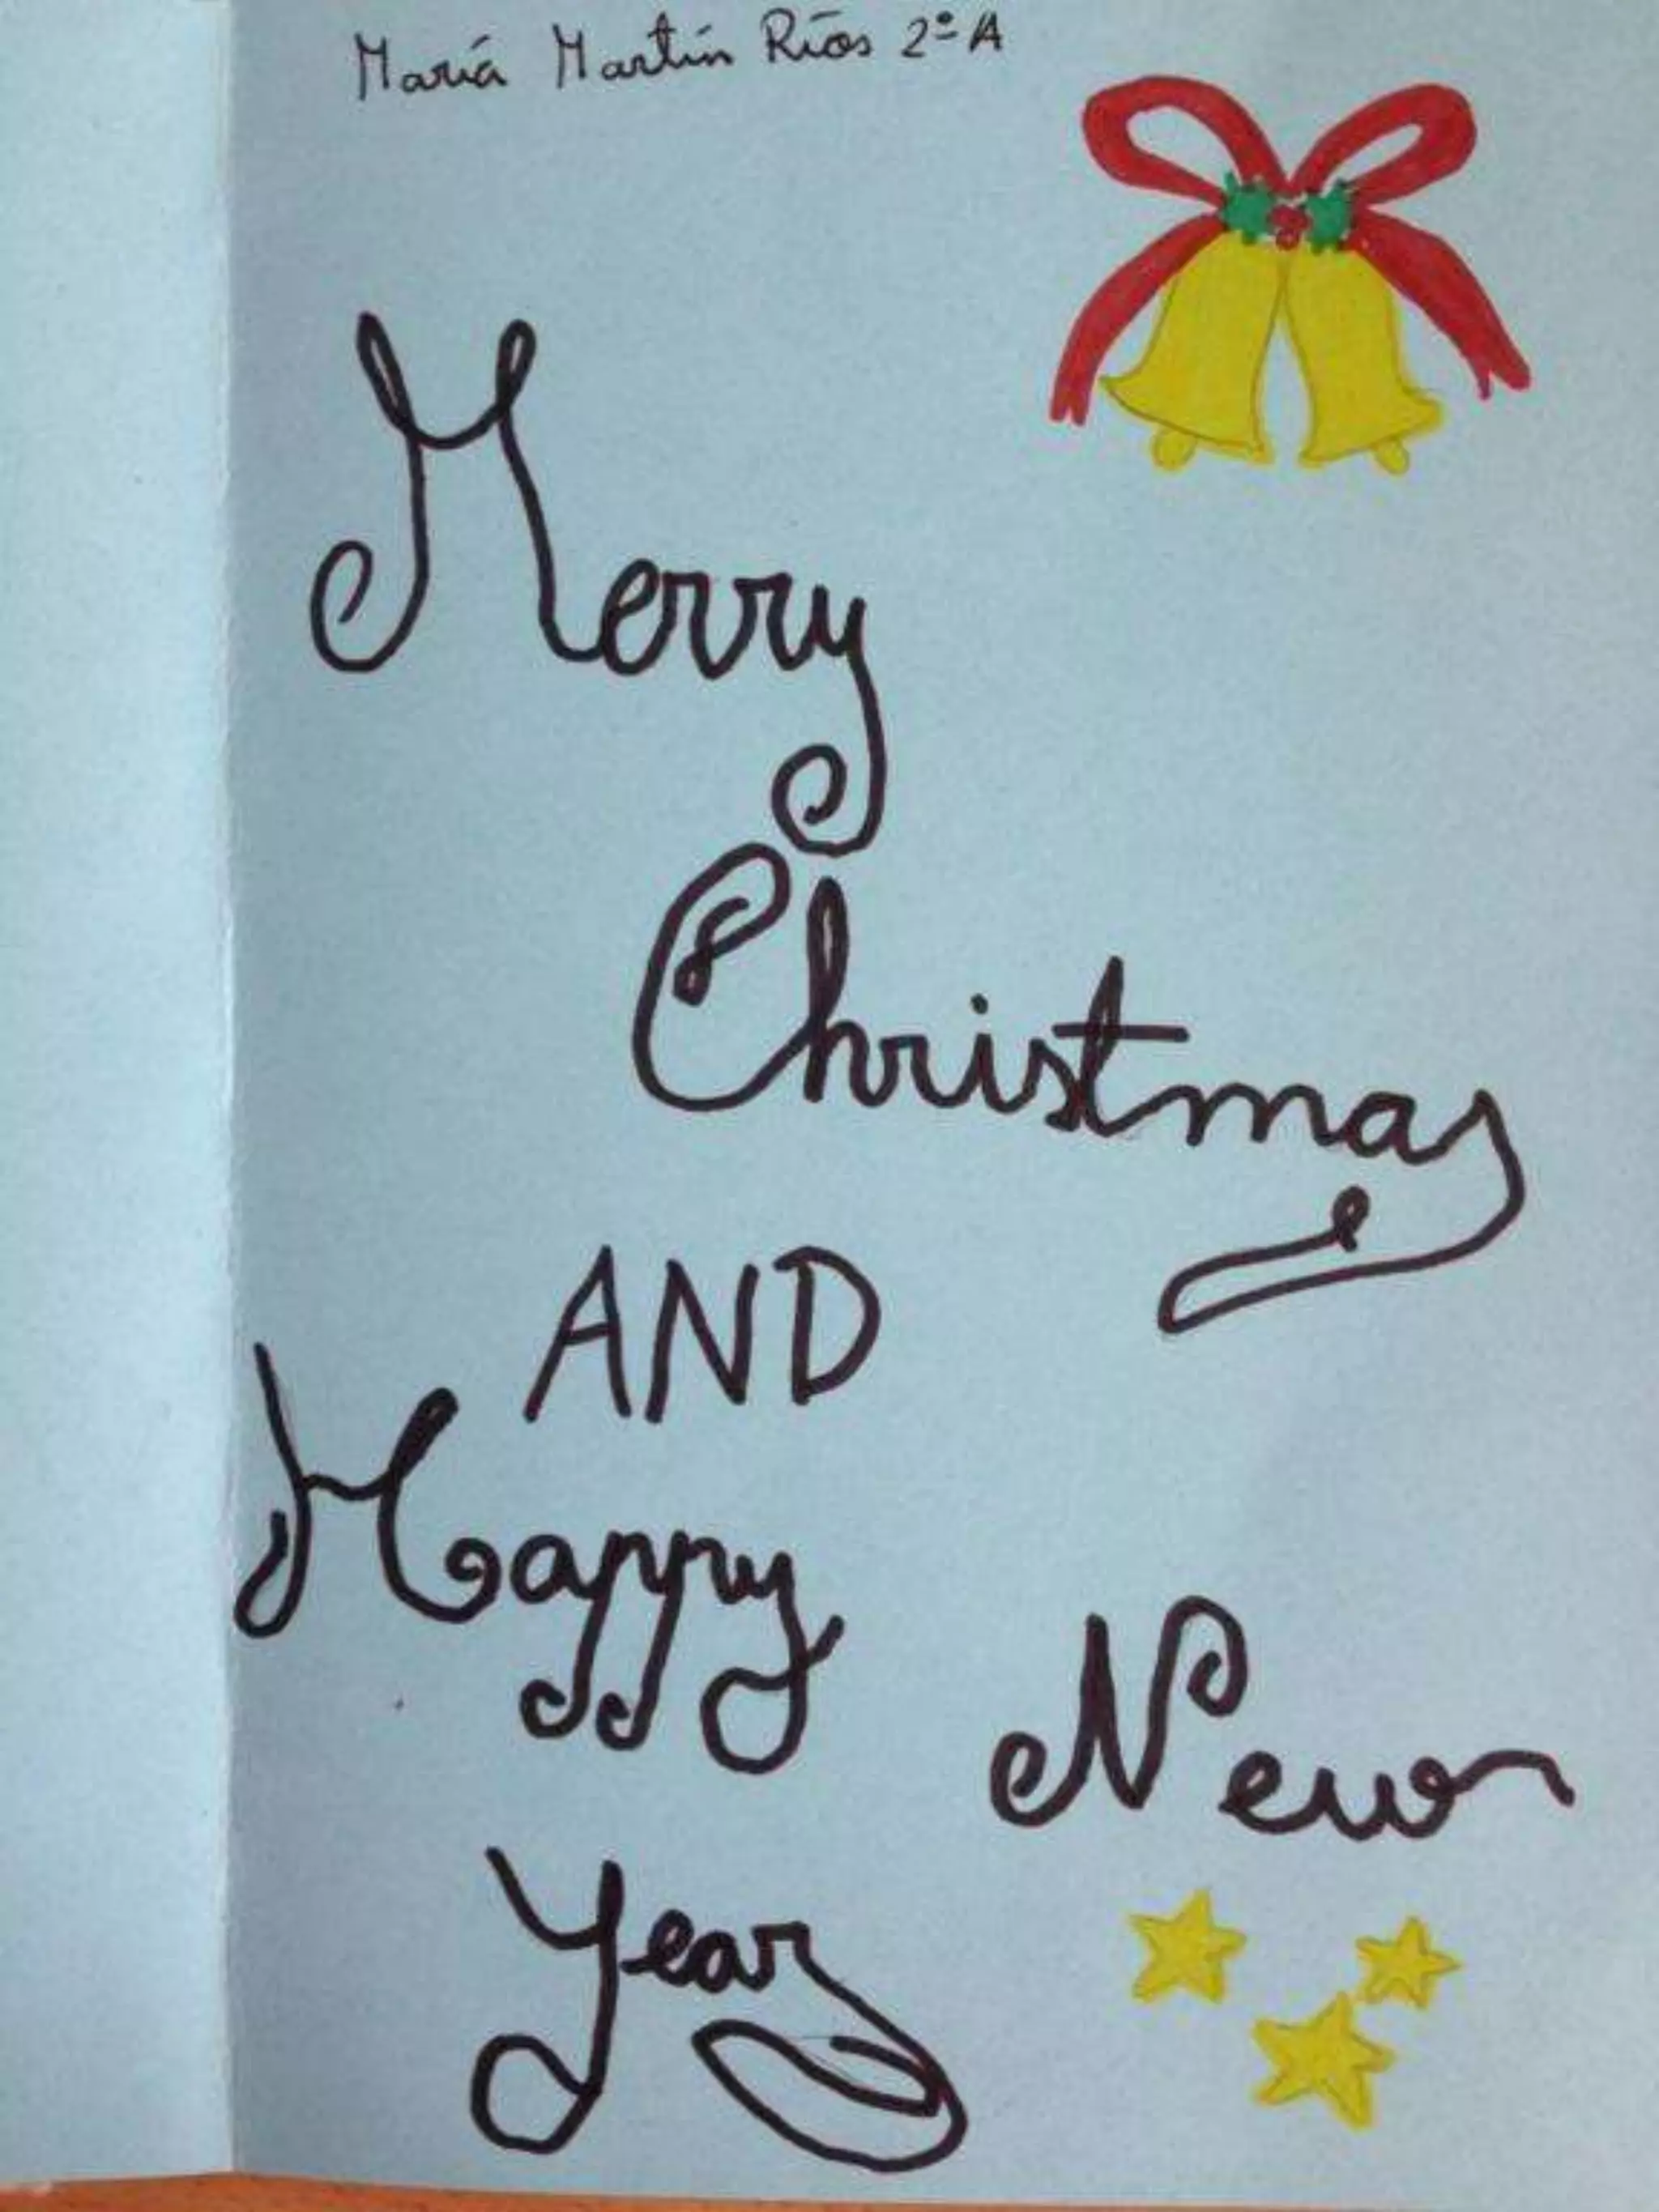 María Martín Ríos 2º A
Merry
Christmas
AND
Happy
New
Year